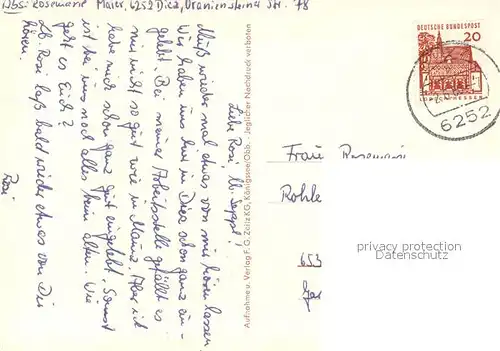 Abs: Rosemarie Maier, 6252 Diez, Oraniensteiner Str. 78
Liebe Rosi, lb. Seppl!
Muß wieder mal etwas von mir hören lassen
Wir haben uns hier in Diez schon ganz ein-
gelebt. Bei meiner Arbeitsstelle gefällt es
mir nicht so gut wie in Mainz. Aber ich
habe mich schon ganz gut eingelebt. Sonst
ist bei uns noch alles beim alten. Wie
geht es Euch?
Lb. Rosi laß bald wieder etwas von Dir
hören.
Rosi
Aufnahme u. Verlag F. G. Zeitz KG, Königssee/Obb. - Jeglicher Nachdruck verboten
DEUTSCHE BUNDESPOST
20
6252
Frau Rosemarie
Rohle
653
privacy protection
VeryOldMemories